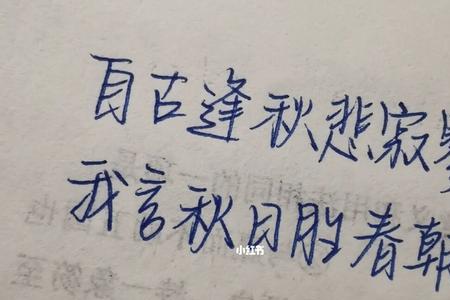 自古逢秋悲寂
我言秋日胜春朝
小红书